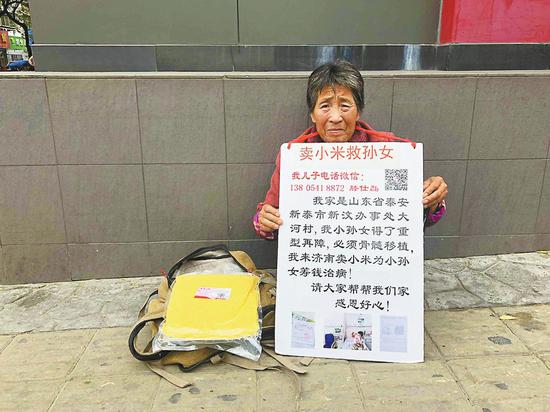 卖小米救孙女
我儿子电话微信：
138 0541 8872
我家是山东省泰安
新泰市新汶办事处大
河村，我小孙女得了重
型再障，必须骨髓移植，
我来济南卖小米为小孙
女筹钱治病！
请大家帮帮我们家
感恩好心！